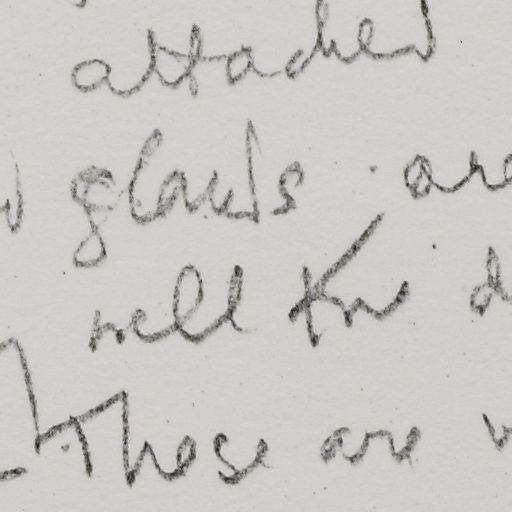 attached
glands are
well Kn
These are